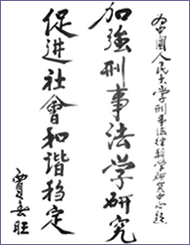 为中國人民大学刑事法律科学研究中心题
加強刑事法学研究
促进社會和谐稳定
賈春旺